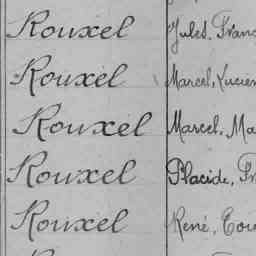 Rouxel Jules, Franc
Rouxel Marcel, Lucien
Rouxel Marcel, Ma
Rouxel Placide, Fr
Rouxel René, Cou